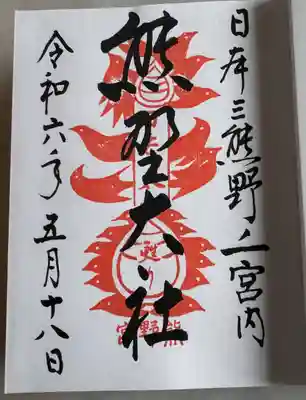 日本三熊野ノ一宮内
熊野大社
令和六年五月十八日
熊野宮